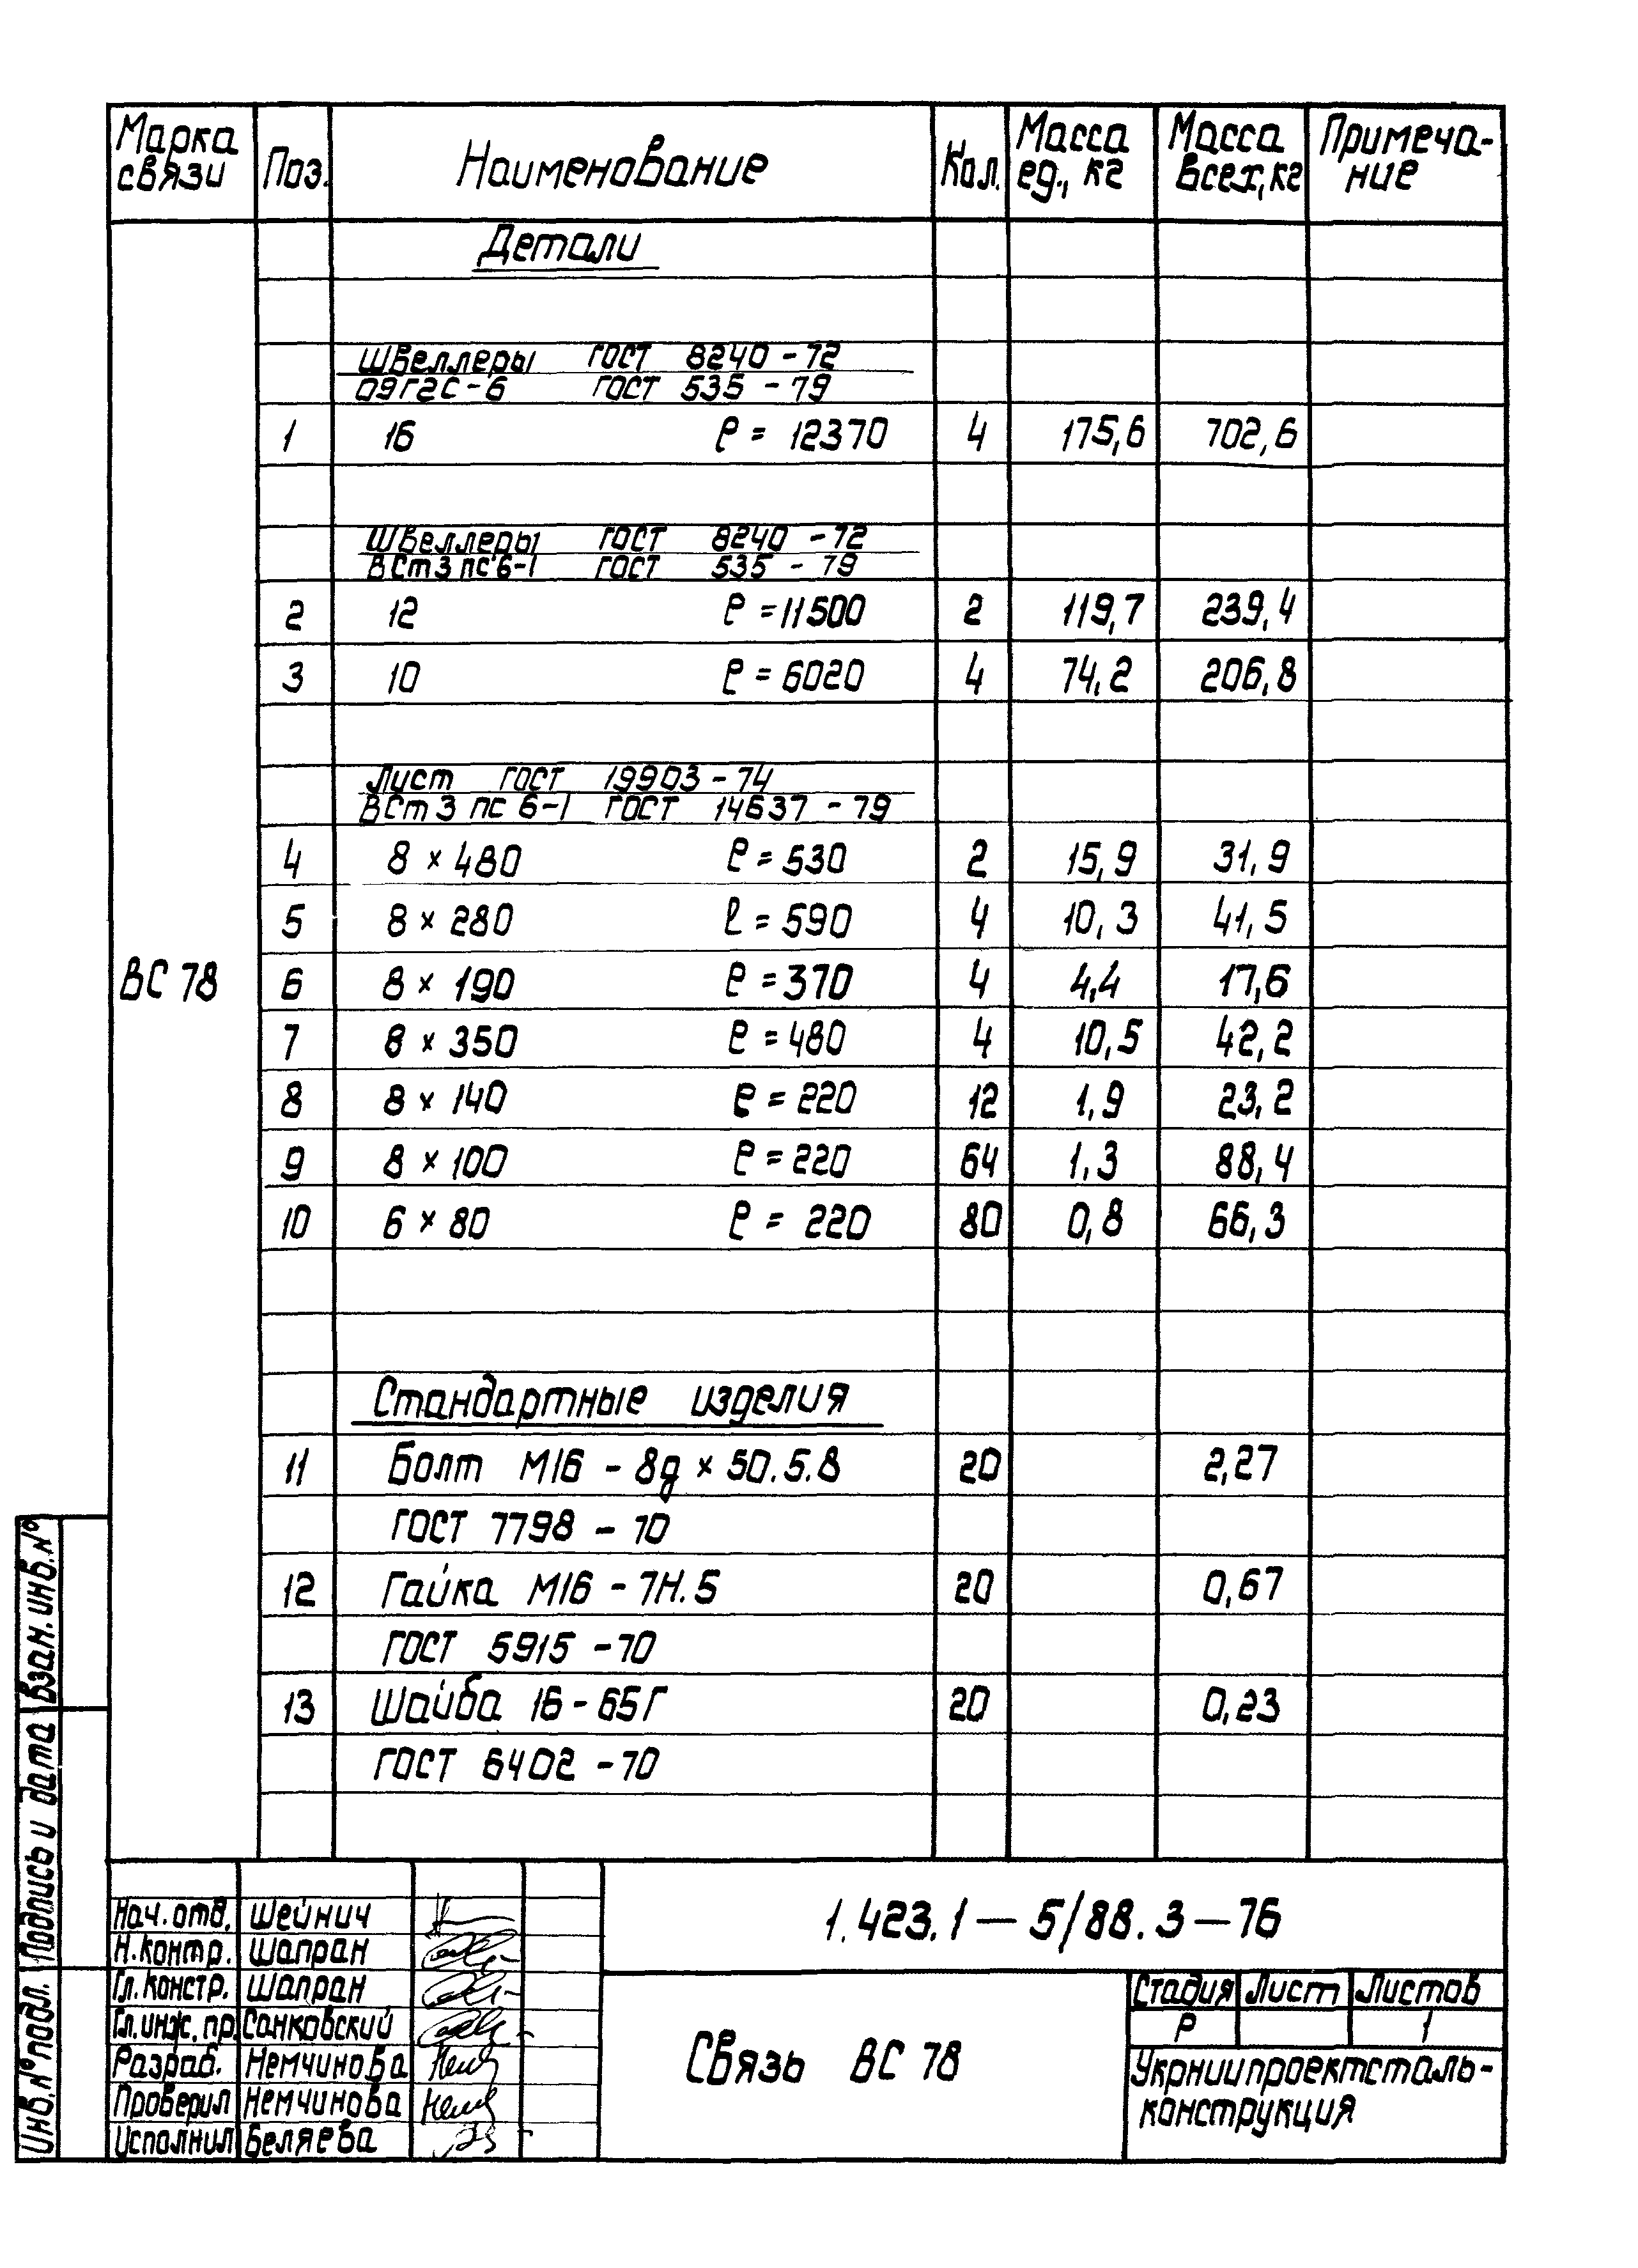 Марка связи Поз. Наименование Кол. Масса ед., кг Масса всех, кг Примеча-ние
Детали
Швеллеры ГОСТ 8240-72
09Г2С-6 ГОСТ 535-79
1 16 ℓ = 12370 4 175,6 702,6
Швеллеры ГОСТ 8240-72
ВСт3пс6-1 ГОСТ 535-79
2 12 ℓ = 11500 2 119,7 239,4
3 10 ℓ = 6020 4 74,2 206,8
Лист ГОСТ 19903-74
ВСт3пс6-1 ГОСТ 14637-79
4 8 × 480 ℓ = 530 2 15,9 31,9
5 8 × 280 ℓ = 590 4 10,3 41,5
ВС 78 6 8 × 190 ℓ = 370 4 4,4 17,6
7 8 × 350 ℓ = 480 4 10,5 42,2
8 8 × 140 ℓ = 220 12 1,9 23,2
9 8 × 100 ℓ = 220 64 1,3 88,4
10 6 × 80 ℓ = 220 80 0,8 66,3
Стандартные изделия
11 Болт М16 - 8g × 50.5.8 20 2,27
ГОСТ 7798 - 70
12 Гайка М16 - 7Н.5 20 0,67
ГОСТ 5915 - 70
13 Шайба 16 - 65Г 20 0,23
ГОСТ 6402 - 70
Взам. инв. №
Подпись и дата
Инв. № подл.
Нач. отд. Шейнич
Н. контр. Шапран
Гл. констр. Шапран
Гл. инж. пр. Санковский
Разраб. Немчинова
Проверил Немчинова
Исполнил Беляева
1.423.1 — 5/88.3 — 76
Связь ВС 78
Стадия Лист Листов
Р 1
Укрниипроектсталь-
конструкция